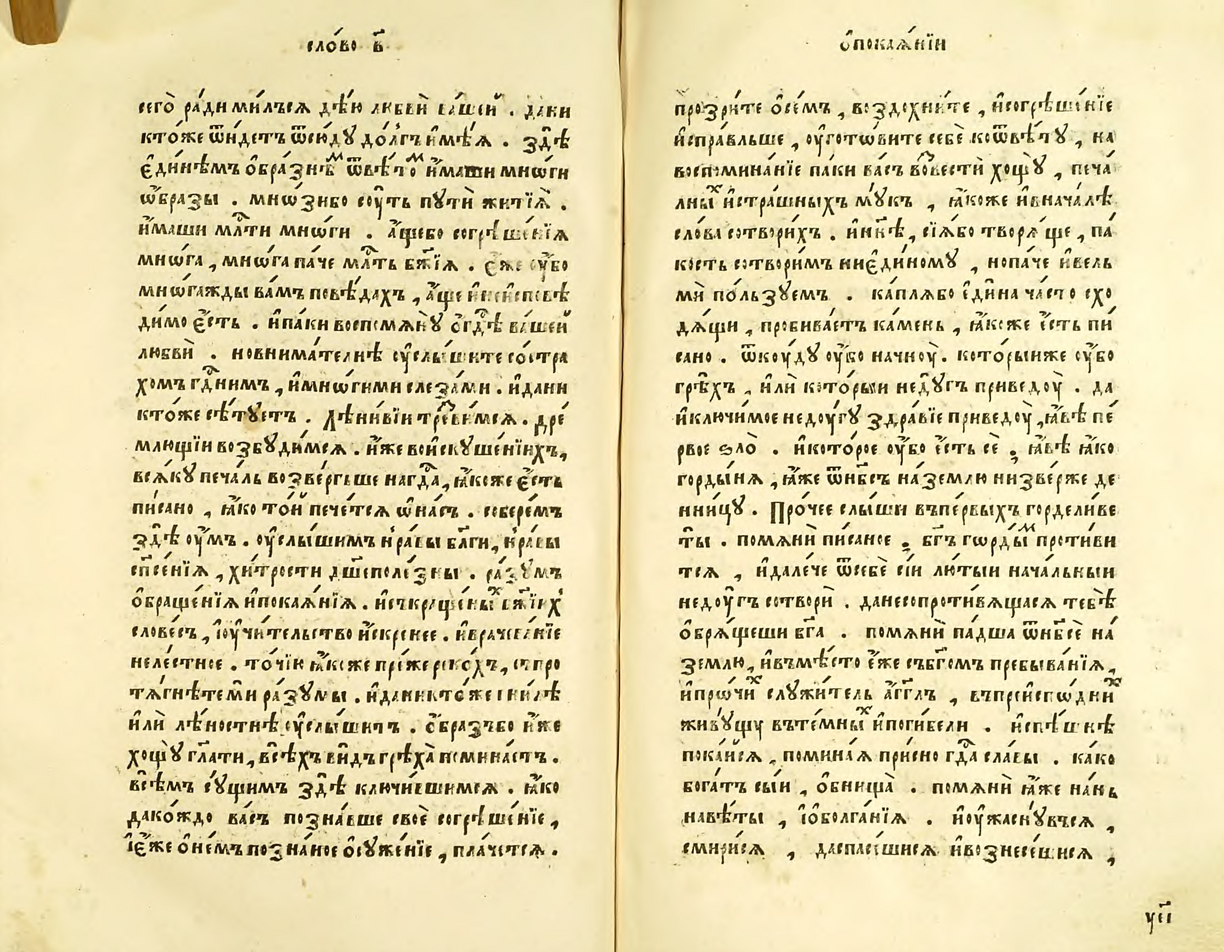 сло́во в҃
сего̀ ра́ди ми́лъсѧ дѣ́ю любвѝ ва́шей . даки
кто́же ѿи́детъ ѿсю́дꙋ до́лгъ и҆мѣ́ѧ . здѣ̀
є҆ди́нѣмъ ѻ҆́бразнѣⷨ ѿвѣ́тоⷨ и҆́маши мнѡ́ги
ѡ҆́бразы . мнѡ́зи бо соу́ть пꙋтѝ житїѧ̀ .
и҆́маши млⷭ҇ти мнѡ́ги . а҆́щебо согрѣше́нїѧ
мнѡ́га , мнѡ́га па́че млⷭ҇ть бж҃їѧ . є҆́же ᲂу҆́бо
мнѡ́гажды ва́мъ повѣ́дахъ , а҆́ще и҆неисповѣ́
димо є҆́сть . и҆па́ки воспомѧнꙋ̀ ѻ҆гдⷭ҇ѣ ва́шей
любвѝ . новнима́телнѣ ᲂу҆слы́шите состра́
хомъ гдⷭ҇нимъ , и҆мнѡ́гими слеза́ми . и҆дани
кто́же сѣ́тꙋетъ . лѣни́вїи тре́звимсѧ . дре́
млющїи возбꙋ́димсѧ . и҆́же вои҆скꙋше́нїихъ ,
всѧ́кꙋ печа́ль возве́ргъше нагдⷭ҇а , ꙗ҆́коже є҆́сть
пи́сано , ꙗ҆́ко то́й пече́тсѧ ѡ҆на́съ . собере́мъ
здѣ̀ ᲂу҆́мъ . ᲂу҆слы́шимъ нра́вы бл҃ги , нра́вы
сп҃се́нїѧ , хи́трости дш҃еполе́зны . ра́зꙋмъ
ѻ҆браще́нїѧ и҆покаѧ́нїѧ .
слове́съ , и҆ᲂу҆чи́тельство и҆́скренее . и҆врачева́нїе
неле́стное . то́чїю ꙗ҆́коже пре́же реко́хъ , съпро
тѧ́гнѣте мѝ ра́зꙋмы . и҆даникто́же
и҆лѝ лѣ́ностнѣ ᲂу҆слы́шитъ . ѻ҆́бразъбо и҆́же
хощꙋ̀ гл҃ати , всѣ́хъ ви́дъ грѣха̀ помина́етъ .
всѣ́мъ сꙋ́щимъ здѣ̀ ключи́вшимсѧ . ꙗ҆́ко
дако́ждо ва́съ позна́вше своѐ согрѣше́нїе ,
и҆є҆́же ѻ҆не́мъ позна́ное ѻ҆сꙋже́нїе , пла́четсѧ .
ѻ҆покаѧ́нїи
прозри́те ѻ҆се́мъ , воздохни́те , и҆согрѣше́нїе
и҆спра́вльше , ᲂу҆гото́вите себѐ коѿвѣ́тꙋ , на
воспомина́нїе па́ки ва́съ во́вестѝ хощꙋ̀ , печа́
лныⷯ и҆стра́шныхъ мꙋ́къ , ꙗ҆́коже и҆внача́лѣ
сло́ва сотвори́хъ . и҆нн҃ѣ , сїѧ́бо творѧ́ще , па́
кость сотвори́мъ ниє҆ди́номꙋ , нопа́че и҆вель
мѝ по́льзꙋемъ . ка́плѧбо є҆ди́на ча́сто схо
дѧ́щи , пробива́етъ ка́мень , ꙗ҆́коже є҆́сть пи́
сано . ѿкоу́дꙋ ᲂу҆́бо начноу̀ . кото́рыиже ᲂу҆́бо
грѣ́хъ , и҆лѝ кото́рыи недꙋ́гъ приведоу̀ . да
и҆ключи́мое недоу́гꙋ здра́вїе приведоу̀ , ꙗ҆́вѣ пе́
рвое ѕло̀ . и҆кото́рое ᲂу҆́бо є҆́сть сѐ ; ꙗ҆́вѣ ꙗ҆́ко
горды́нѧ , ꙗ҆́же ѿнб҃съ на́землю низве́рже де
нни́цꙋ . Про́чее слы́ши въпе́рвыхъ горделиве
ты̀ . помѧнѝ пи́саное ; бг҃ъ го́рдыⷨ проти́ви
тсѧ , и҆дале́че ѿсебѐ сі́и лю́тыи нача́льныи
недоу́гъ сотворѝ . данесопроти́вѧщасѧ тебѣ̀
ѻ҆брѧ́щеши бг҃а . помѧнѝ па́дша ѿнб҃сѐ на́
землю , и҆въмѣ́сто є҆́же събг҃омъ пребыва́нїѧ ,
и҆про́чиⷯ слꙋжи́тель а҆́гг҃лъ , въпреиспо́дниⷯ
живꙋ́щꙋ въте́мныⷯ и҆поги́бели . и҆спѣ́шнѣ
пока́йсѧ , помина́ѧ при́сно гдⷭ҇а сла́вы . ка́ко
бога́тъ сы́и , ѻ҆бнища̀ . помѧнѝ ꙗ҆́же на́нь
навѣ́ты , и҆ѻ҆болга́нїѧ . и҆оу҆жаснꙋ́въсѧ ,
смири́сѧ , даспасе́шисѧ и҆вознесе́шисѧ ,